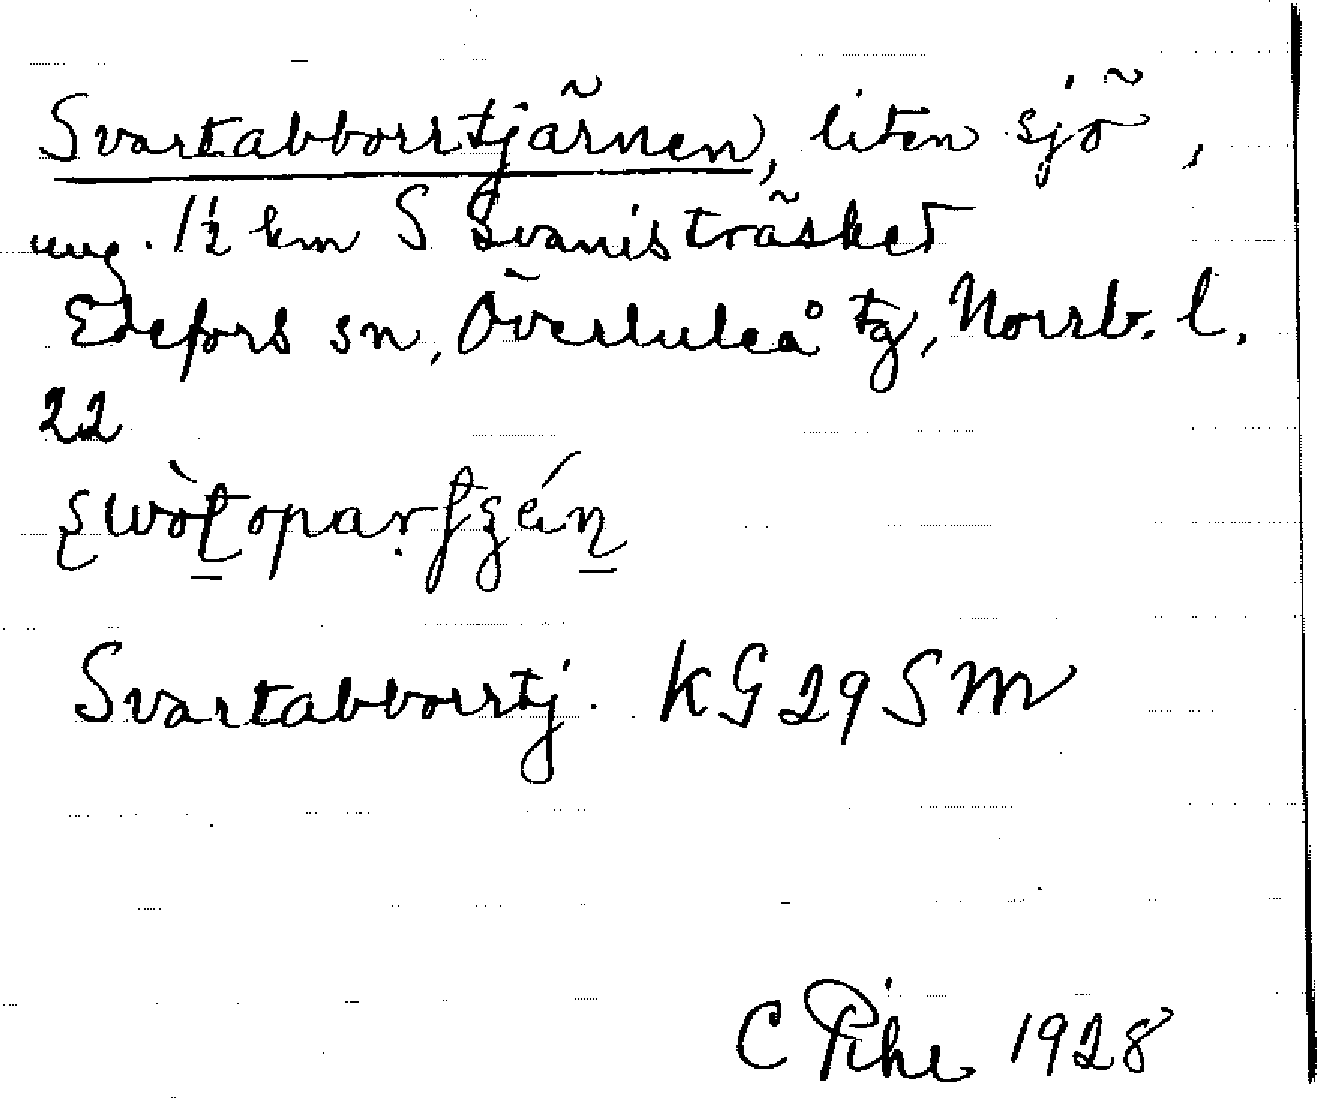 Svartabborrtjärnen, liten sjö,
ung. 1½ km S Svanisträsket
Edefors sn, Överluleå tg, Norrb. l.
22
Svartabborrtj. KG 29 SM
C Pihl 1928